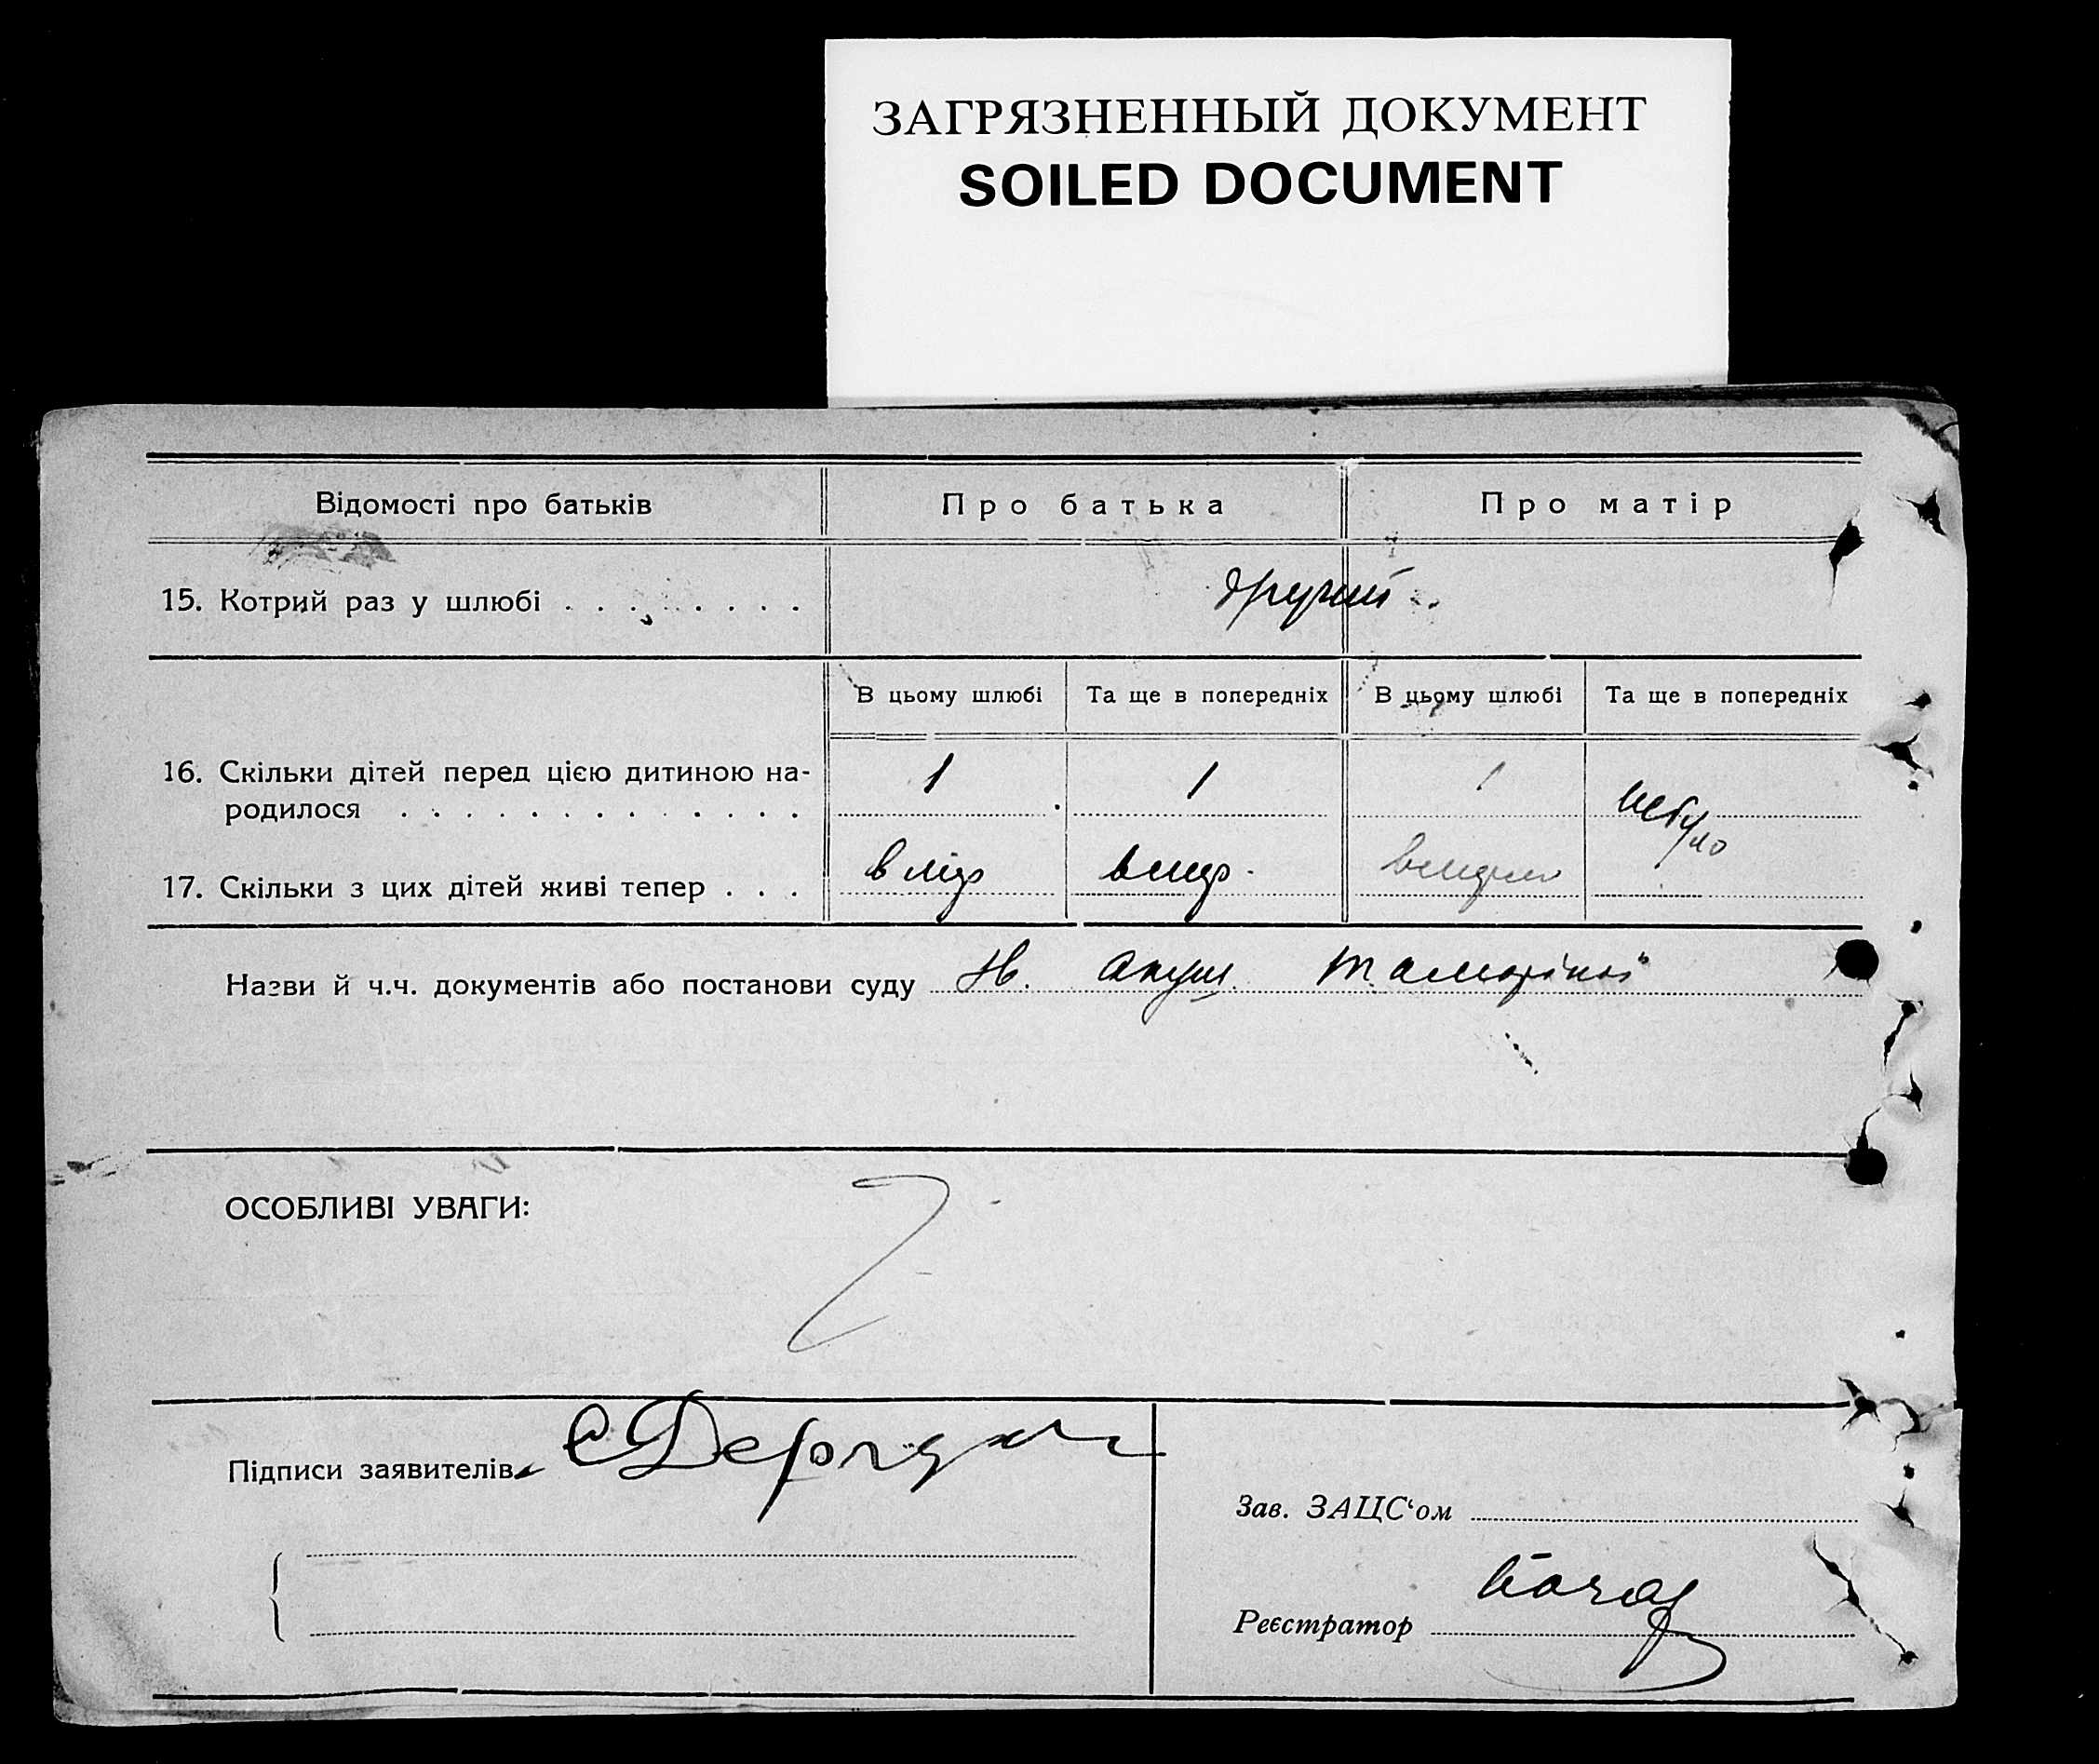 ЗАГРЯЗНЕННЫЙ ДОКУМЕНТ
SOILED DOCUMENT
Відомості про батьків Про батька Про матір
15. Котрий раз у шлюбі . . . . . . . . другий
В цьому шлюбі Та ще в попередніх В цьому шлюбі Та ще в попередніх
16. Скільки дітей перед цією дитиною на-
родилося . . . . . . . . . . . . . 1 1 1 не було
17. Скільки з цих дітей живі тепер . . .
Назви й ч.ч. документів або постанови суду Акуш
ОСОБЛИВІ УВАГИ:
Підписи заявителів
Зав. ЗАЦС‘ом
Реєстратор